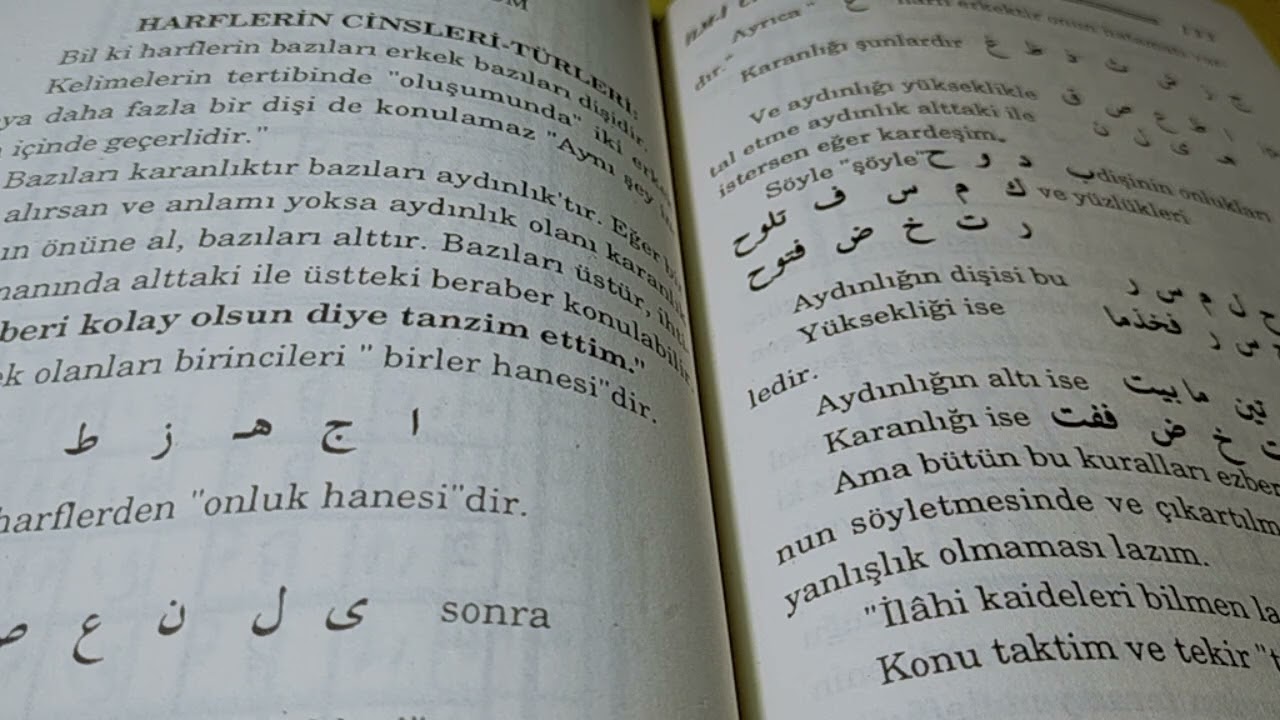 HARFLERİN CİNSLERİ-TÜRLERİ:
Bil ki harflerin bazıları erkek bazıları dişidir.
Kelimelerin tertibinde "oluşumunda" iki
ya daha fazla bir dişi de konulamaz "Aynı şey
içinde geçerlidir."
Bazıları karanlıktır bazıları aydınlık'tır. Eğer
alırsan ve anlamı yoksa aydınlık olanı
ın önüne al, bazıları alttır. Bazıları üstür,
manında alttaki ile üstteki beraber konulabilir.
beri kolay olsun diye tanzim ettim."
ek olanları birincileri " birler hanesi"dir.
ا ج هـ ز ط
harflerden "onluk hanesi"dir.
ى ل ن ع ص sonra
Ayrıca "
dır."
Karanlığı şunlardır
Ve aydınlığı yükseklikle
tal etme aydınlık alttaki ile
istersen eğer kardeşim.
Söyle "şöyle" ح و د ب dişinin onlukları
ك م س ف تلوح ve yüzlükleri
ر ت خ ض فتوح
Aydınlığın dişisi bu ر س م ل ح
Yüksekliği ise فخذما ر س
ledir.
Aydınlığın altı ise تين ما بيت
Karanlığı ise ت خ ض ففت
Ama bütün bu kuralları
nun söyletmesinde ve
yanlışlık olmaması lazım.
"İlâhi kaideleri bilmen
Konu taktim ve tekir